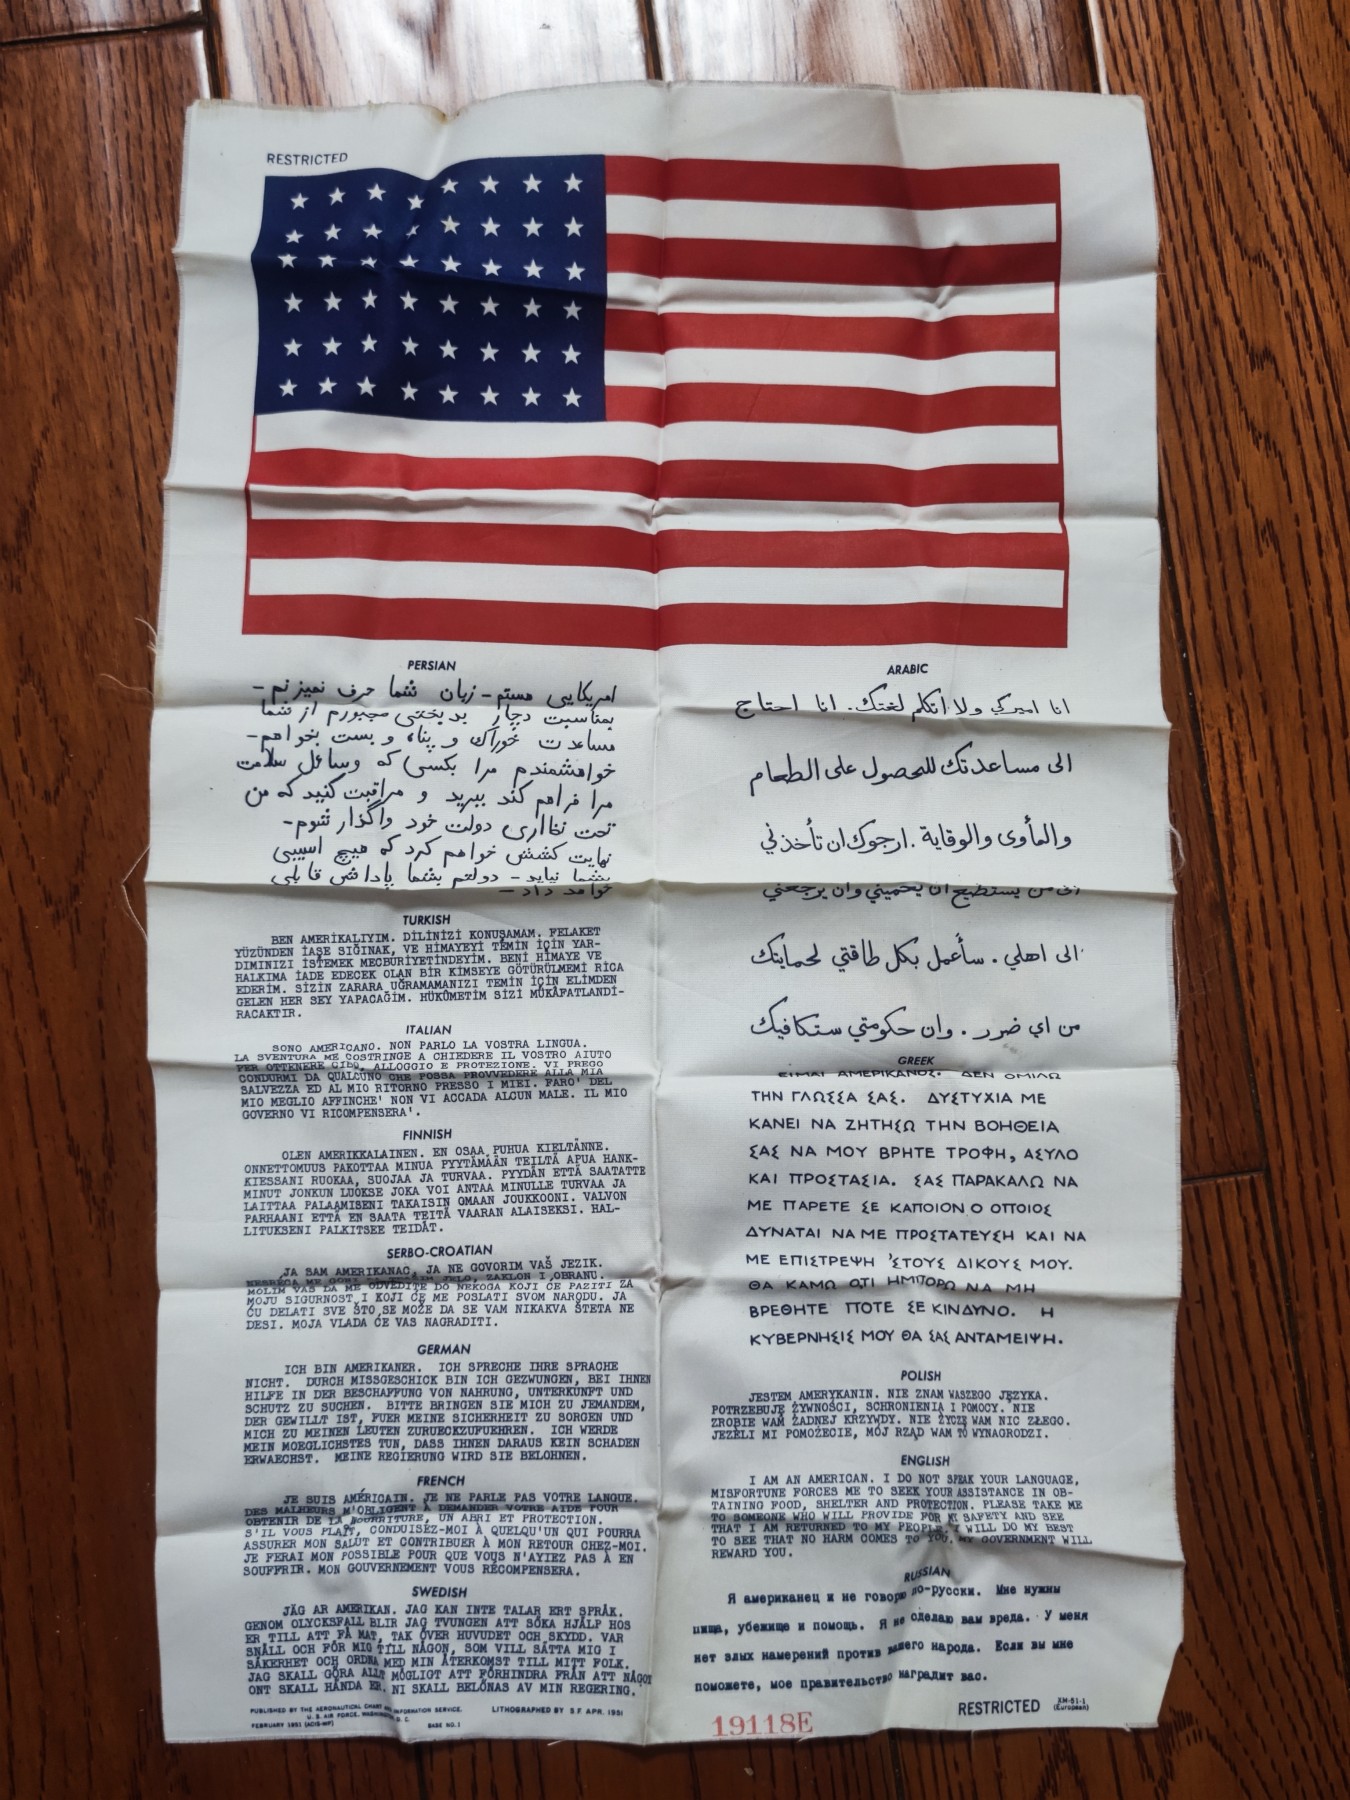 RESTRICTED
PERSIAN
امریکایی هستم - زبان شما حرف نمیزنم -
بمناسبت دچار بدبختی مجبورم از شما
مساعدت خوراک و پناه و بست بخواهم -
خواهشمندم مرا بکسی که وسائل سلامت
مرا فراهم کند ببرید و مراقبت کنید که من
تحت نگهداری دولت خود واگذار شوم -
نهایت کشش خواهم کرد که هیچ آسیبی
بشما نیاید - دولتم بشما پاداش قابلی
خواهد داد -
TURKISH
BEN AMERİKALIYIM. DİLİNİZİ KONUŞAMAM. FELAKET
YÜZÜNDEN İAŞE SIĞINAK, VE HİMAYEYİ TEMİN İÇİN YAR-
DIMINIZI İSTEMEK MECBURİYETİNDEYİM. BENİ HİMAYE VE
HALKIMA İADE EDECEK OLAN BİR KİMSEYE GÖTÜRÜLMEMİ RICA
EDERİM. SİZİN ZARARA UĞRAMAMANIZI TEMİN İÇİN ELİMDEN
GELEN HER SEY YAPACAĞIM. HÜKÛMETİM SİZİ MÜKÂFATLANDI-
RACAKTIR.
ITALIAN
SONO AMERICANO. NON PARLO LA VOSTRA LINGUA.
LA SVENTURA ME COSTRINGE A CHIEDERE IL VOSTRO AIUTO
PER OTTENERE CIBO, ALLOGGIO E PROTEZIONE. VI PREGO
CONDURMI DA QUALCUNO CHE POSSA PROVVEDERE ALLA MIA
SALVEZZA ED AL MIO RITORNO PRESSO I MIEI. FARO' DEL
MIO MEGLIO AFFINCHE' NON VI ACCADA ALCUN MALE. IL MIO
GOVERNO VI RICOMPENSERA'.
FINNISH
OLEN AMERIKKALAINEN. EN OSAA PUHUA KIELTÄNNE.
ONNETTOMUUS PAKOTTAA MINUA PYYTÄMÄÄN TEILTÄ APUA HANK-
KIESSANI RUOKAA, SUOJAA JA TURVAA. PYYDÄN ETTÄ SAATATTE
MINUT JONKUN LUOKSE JOKA VOI ANTAA MINULLE TURVAA JA
LAITTAA PALAAMISENI TAKAISIN OMAAN JOUKKOONI. VALVON
PARHAANI ETTÄ EN SAATA TEITÄ VAARAN ALAISEKSI. HAL-
LITUKSENI PALKITSEE TEIDÄT.
SERBO-CROATIAN
JA SAM AMERIKANAC, JA NE GOVORIM VAŠ JEZIK.
NESREĆA ME GONI JELO, ZAKLON I OBRANU.
MOLIM VAS DA ME ODVEDITE DO NEKOGA KOJI ĆE PAZITI ZA
MOJU SIGURNOST I KOJI ĆE ME POSLATI SVOM NARODU. JA
ĆU DELATI SVE ŠTO SE MOŽE DA SE VAM NIKAKVA ŠTETA NE
DESI. MOJA VLADA ĆE VAS NAGRADITI.
GERMAN
ICH BIN AMERIKANER. ICH SPRECHE IHRE SPRACHE
NICHT. DURCH MISSGESCHICK BIN ICH GEZWUNGEN, BEI IHNEN
HILFE IN DER BESCHAFFUNG VON NAHRUNG, UNTERKUNFT UND
SCHUTZ ZU SUCHEN. BITTE BRINGEN SIE MICH ZU JEMANDEM,
DER GEWILLT IST, FUER MEINE SICHERHEIT ZU SORGEN UND
MICH ZU MEINEN LEUTEN ZURUECKZUFUEHREN. ICH WERDE
MEIN MOEGLICHSTES TUN, DASS IHNEN DARAUS KEIN SCHADEN
ERWAECHST. MEINE REGIERUNG WIRD SIE BELOHNEN.
FRENCH
JE SUIS AMÉRICAIN. JE NE PARLE PAS VOTRE LANGUE.
DES MALHEURS M'OBLIGENT À DEMANDER VOTRE AIDE POUR
OBTENIR DE LA NOURRITURE, UN ABRI ET PROTECTION.
S'IL VOUS PLAÎT, CONDUISEZ-MOI À QUELQU'UN QUI POURRA
ASSURER MON SALUT ET CONTRIBUER À MON RETOUR CHEZ-MOI.
JE FERAI MON POSSIBLE POUR QUE VOUS N'AYIEZ PAS À EN
SOUFFRIR. MON GOUVERNEMENT VOUS RÉCOMPENSERA.
SWEDISH
JÄG AR AMERIKAN. JAG KAN INTE TALAR ERT SPRÅK.
GENOM OLYCKSFALL BLIR JAG TVUNGEN ATT SÖKA HJÄLP HOS
ER TILL ATT FÅ MAT, TAK ÖVER HUVUDET OCH SKYDD. VAR
SNÄLL OCH FÖR MIG TILL NÅGON, SOM VILL SÄTTA MIG I
SÄKERHET OCH ORDNA MED MIN ÅTERKOMST TILL MITT FOLK.
JAG SKALL GÖRA ALLT MÖGLIGT ATT FÖRHINDRA FRÅN ATT NÅGOT
ONT SKALL HÄNDA ER. NI SKALL BELÖNAS AV MIN REGERING.
PUBLISHED BY THE AERONAUTICAL CHART AND INFORMATION SERVICE.
U. S. AIR FORCE, WASHINGTON, D. C.
FEBRUARY 1951 (ACIS-MF) BASE NO. 1
LITHOGRAPHED BY S.F. APR. 1951
ARABIC
انا اميركي ولا اتكلم لغتك. انا احتاج
الى مساعدتك للحصول على الطعام
والمأوى والوقاية. ارجوك ان تأخذني
الى من يستطيع ان يحميني وان يرجعني
الى اهلي. سأعمل بكل طاقتي لحمايتك
من اي ضرر. وان حكومتي ستكافيك
GREEK
ΕΙΜΑΙ ΑΜΕΡΙΚΑΝΟΣ. ΔΕΝ ΟΜΙΛΩ
ΤΗΝ ΓΛΩΣΣΑ ΣΑΣ. ΔΥΣΤΥΧΙΑ ΜΕ
ΚΑΝΕΙ ΝΑ ΖΗΤΗΣΩ ΤΗΝ ΒΟΗΘΕΙΑ
ΣΑΣ ΝΑ ΜΟΥ ΒΡΗΤΕ ΤΡΟΦΗ, ΑΣΥΛΟ
ΚΑΙ ΠΡΟΣΤΑΣΙΑ. ΣΑΣ ΠΑΡΑΚΑΛΩ ΝΑ
ΜΕ ΠΑΡΕΤΕ ΣΕ ΚΑΠΟΙΟΝ Ο ΟΠΟΙΟΣ
ΔΥΝΑΤΑΙ ΝΑ ΜΕ ΠΡΟΣΤΑΤΕΥΣΗ ΚΑΙ ΝΑ
ΜΕ ΕΠΙΣΤΡΕΨΗ 'ΣΤΟΥΣ ΔΙΚΟΥΣ ΜΟΥ.
ΘΑ ΚΑΜΩ ΟΤΙ ΗΜΠΟΡΩ ΝΑ ΜΗ
ΒΡΕΘΗΤΕ ΠΟΤΕ ΣΕ ΚΙΝΔΥΝΟ. Η
ΚΥΒΕΡΝΗΣΙΣ ΜΟΥ ΘΑ ΣΑΣ ΑΝΤΑΜΕΙΨΗ.
POLISH
JESTEM AMERYKANIN. NIE ZNAM WASZEGO JĘZYKA.
POTRZEBUJĘ ŻYWNOŚCI, SCHRONIENIA I POMOCY. NIE
ZROBIĘ WAM ŻADNEJ KRZYWDY. NIE ŻYCZĘ WAM NIC ZŁEGO.
JEŻELI MI POMOŻECIE, MÓJ RZĄD WAM TO WYNAGRODZI.
ENGLISH
I AM AN AMERICAN. I DO NOT SPEAK YOUR LANGUAGE.
MISFORTUNE FORCES ME TO SEEK YOUR ASSISTANCE IN OB-
TAINING FOOD, SHELTER AND PROTECTION. PLEASE TAKE ME
TO SOMEONE WHO WILL PROVIDE FOR MY SAFETY AND SEE
THAT I AM RETURNED TO MY PEOPLE. I WILL DO MY BEST
TO SEE THAT NO HARM COMES TO YOU. MY GOVERNMENT WILL
REWARD YOU.
RUSSIAN
Я американец и не говорю по-русски. Мне нужны
пища, убежище и помощь. Я не сделаю вам вреда. У меня
нет злых намерений против вашего народа. Если вы мне
поможете, мое правительство наградит вас.
RESTRICTED
XM-51-1
(European)
19118E